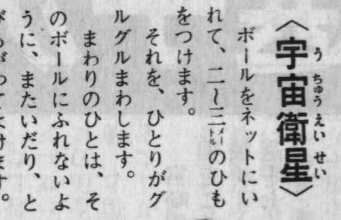 〈宇宙衛星〉
うちゅうえいせい
ボールをネットにい
れて、二〜三メートルのひも
をつけます。
それを、ひとりがグ
ルグルまわします。
まわりのひとは、そ
のボールにふれないよ
うに、またいだり、と
びあがってよけます。